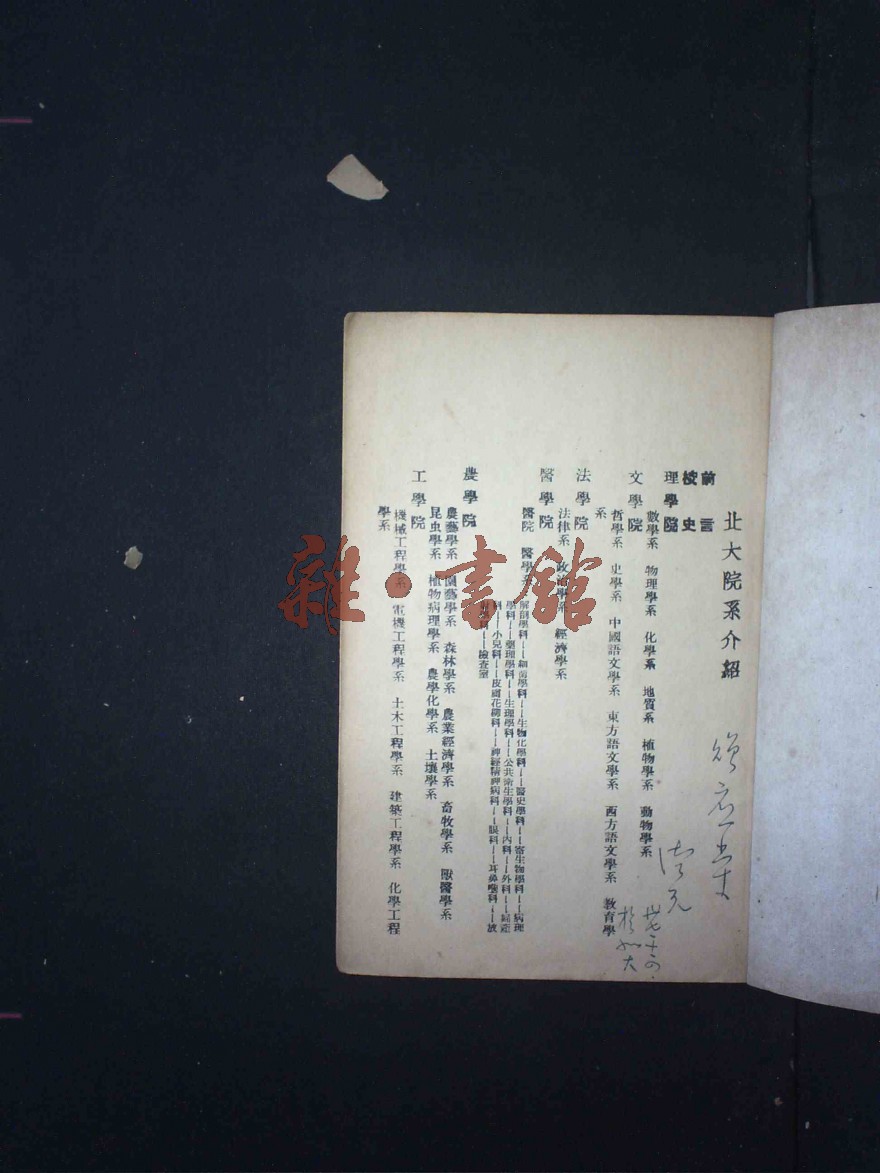 北大院系介紹
前言
校史
理學院
數學系 物理學系 化學系 地質系 植物學系 動物學系
文學院
哲學系 史學系 中國語文學系 東方語文學系 西方語文學系 教育學
系
法學院
法律系 政治學系 經濟學系
醫學院
醫院 醫學系
解剖學科——細菌學科——生物化學科——醫史學科——寄生物學科——病理
學科——藥理學科——生理學科——公共衛生學科——內科——外科——婦產
科——小兒科——皮膚花柳科——神經精神病科——眼科——耳鼻喉科——放
檢查室
農學院
農藝學系 園藝學系 森林學系 農業經濟學系 畜牧學系 獸醫學系
昆虫學系 植物病理學系 農學化學系 土壤學系
工學院
機械工程學系 電機工程學系 土木工程學系 建築工程學系 化學工程
學系
雜·書館